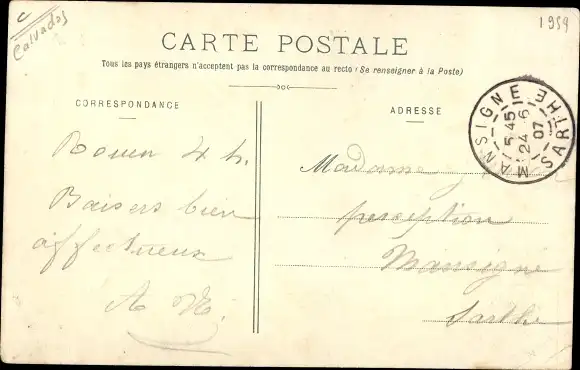 Calvados
1959
CARTE POSTALE
Tous les pays étrangers n'acceptent pas la correspondance au recto (Se renseigner à la Poste)
CORRESPONDANCE
Rouen 4 h.
Baisers bien
affectueux
ADRESSE
Madame
perception
Mansigné
Sarthe
MANSIGNÉ SARTHE
5 45
24 - 6
07